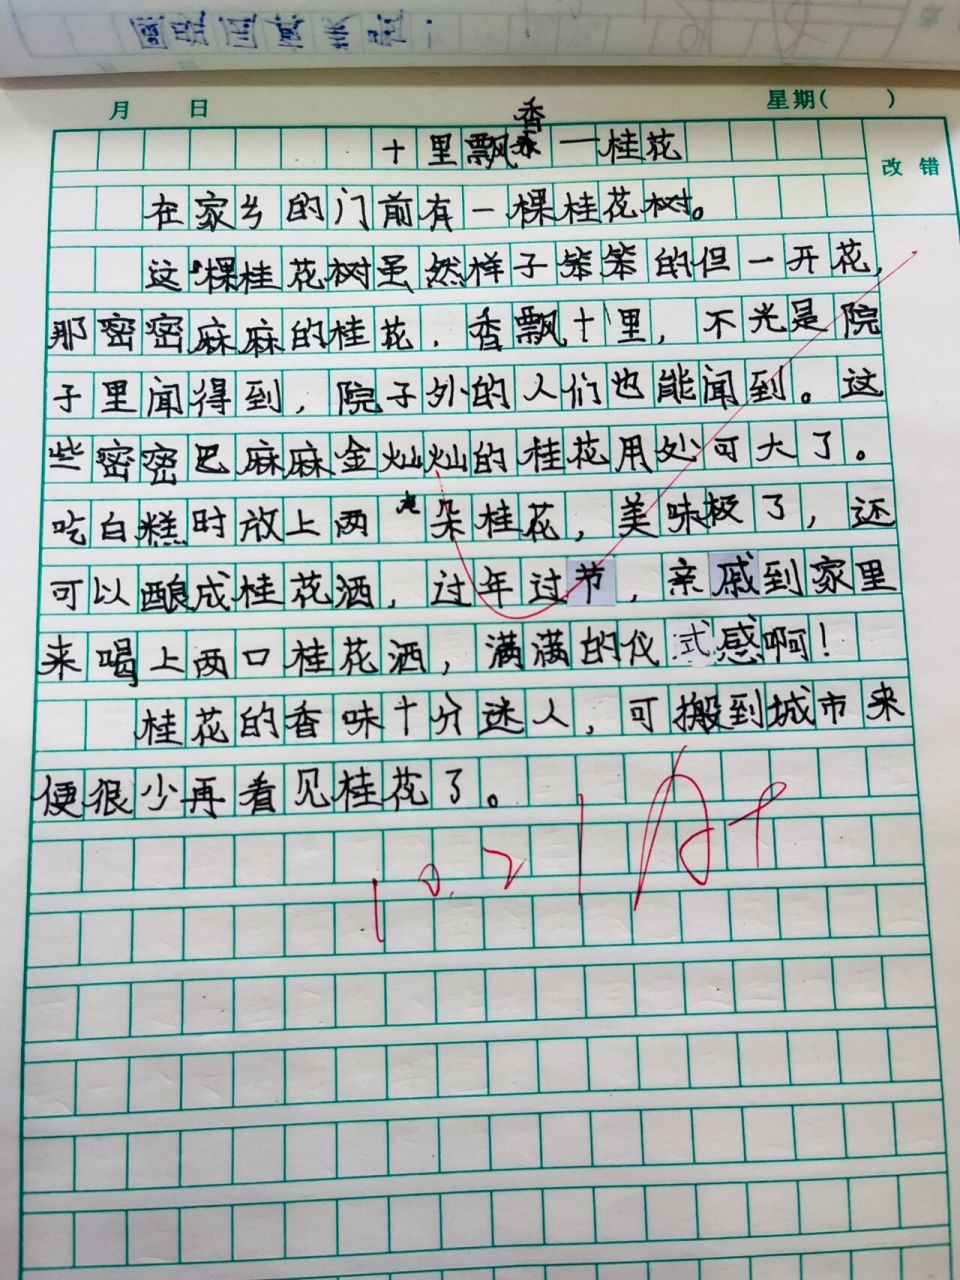 月 日 星期( )
十里飘香一桂花
改错
在家乡的门前有一棵桂花树。
这棵桂花树虽然样子笨笨的但一开花,
那密密麻麻的桂花，香飘十里，不光是院
子里闻得到，院子外的人们也能闻到。这
些密密巴麻麻金灿灿的桂花用处可大了。
吃白糕时放上两朵桂花，美味极了，还
可以酿成桂花洒，过年过节，亲戚到家里
来喝上两口桂花洒，满满的仪式感啊！
桂花的香味十分迷人，可搬到城市来
便很少再看见桂花了。
10.21 A+